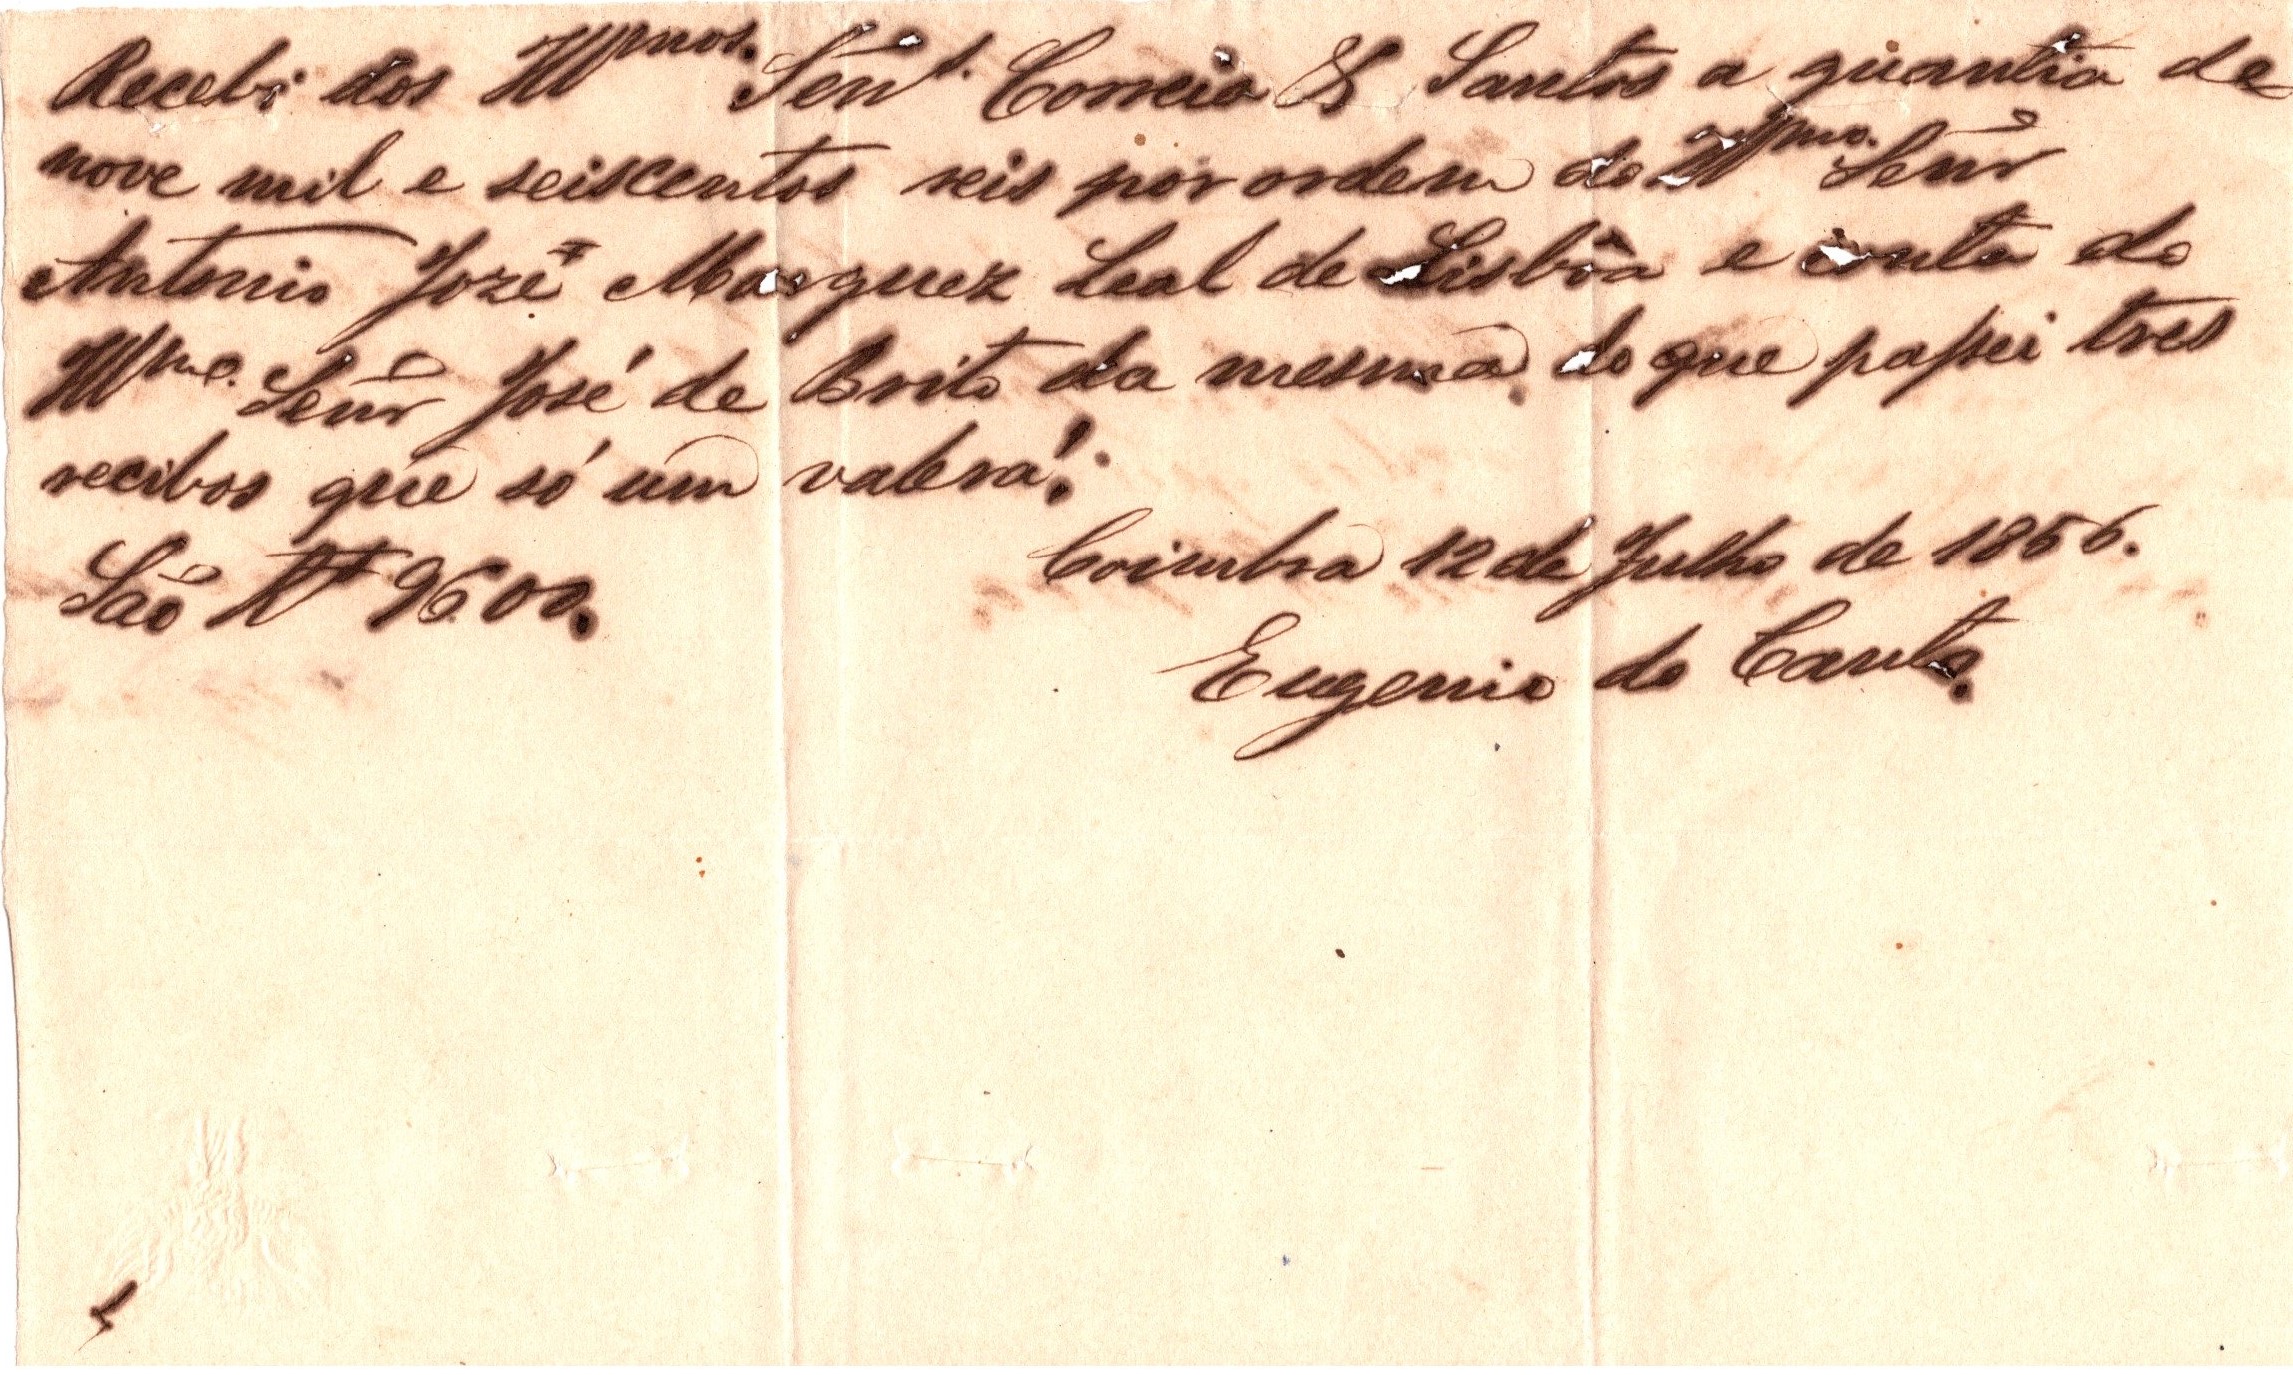 Recebi dos Illmos. Senrs. Correia & Santos a quantia de
nove mil e seiscentos reis por ordem do Illmo. Senr
Antonio Jozé Marquez Leal de Lisbôa e conta do
Illmo. Senr José de Brito da mesma, do que passei tres
recibos que só um valerá!
São Rs 9600.
Coimbra 12 de Julho de 1856.
Eugenio do Canto.